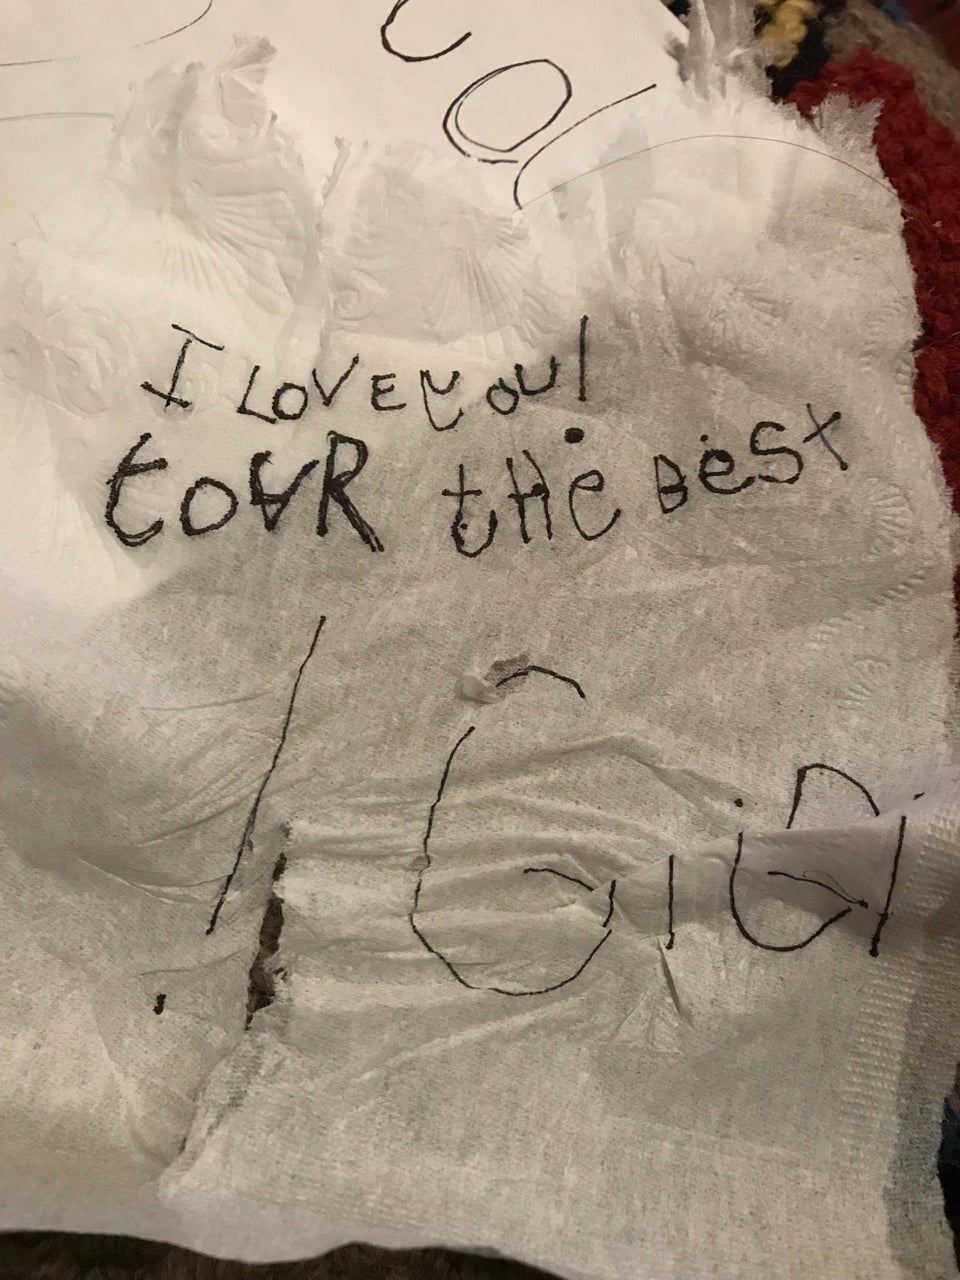 I LOVE you!
YouR tHe BesT
! GiGi